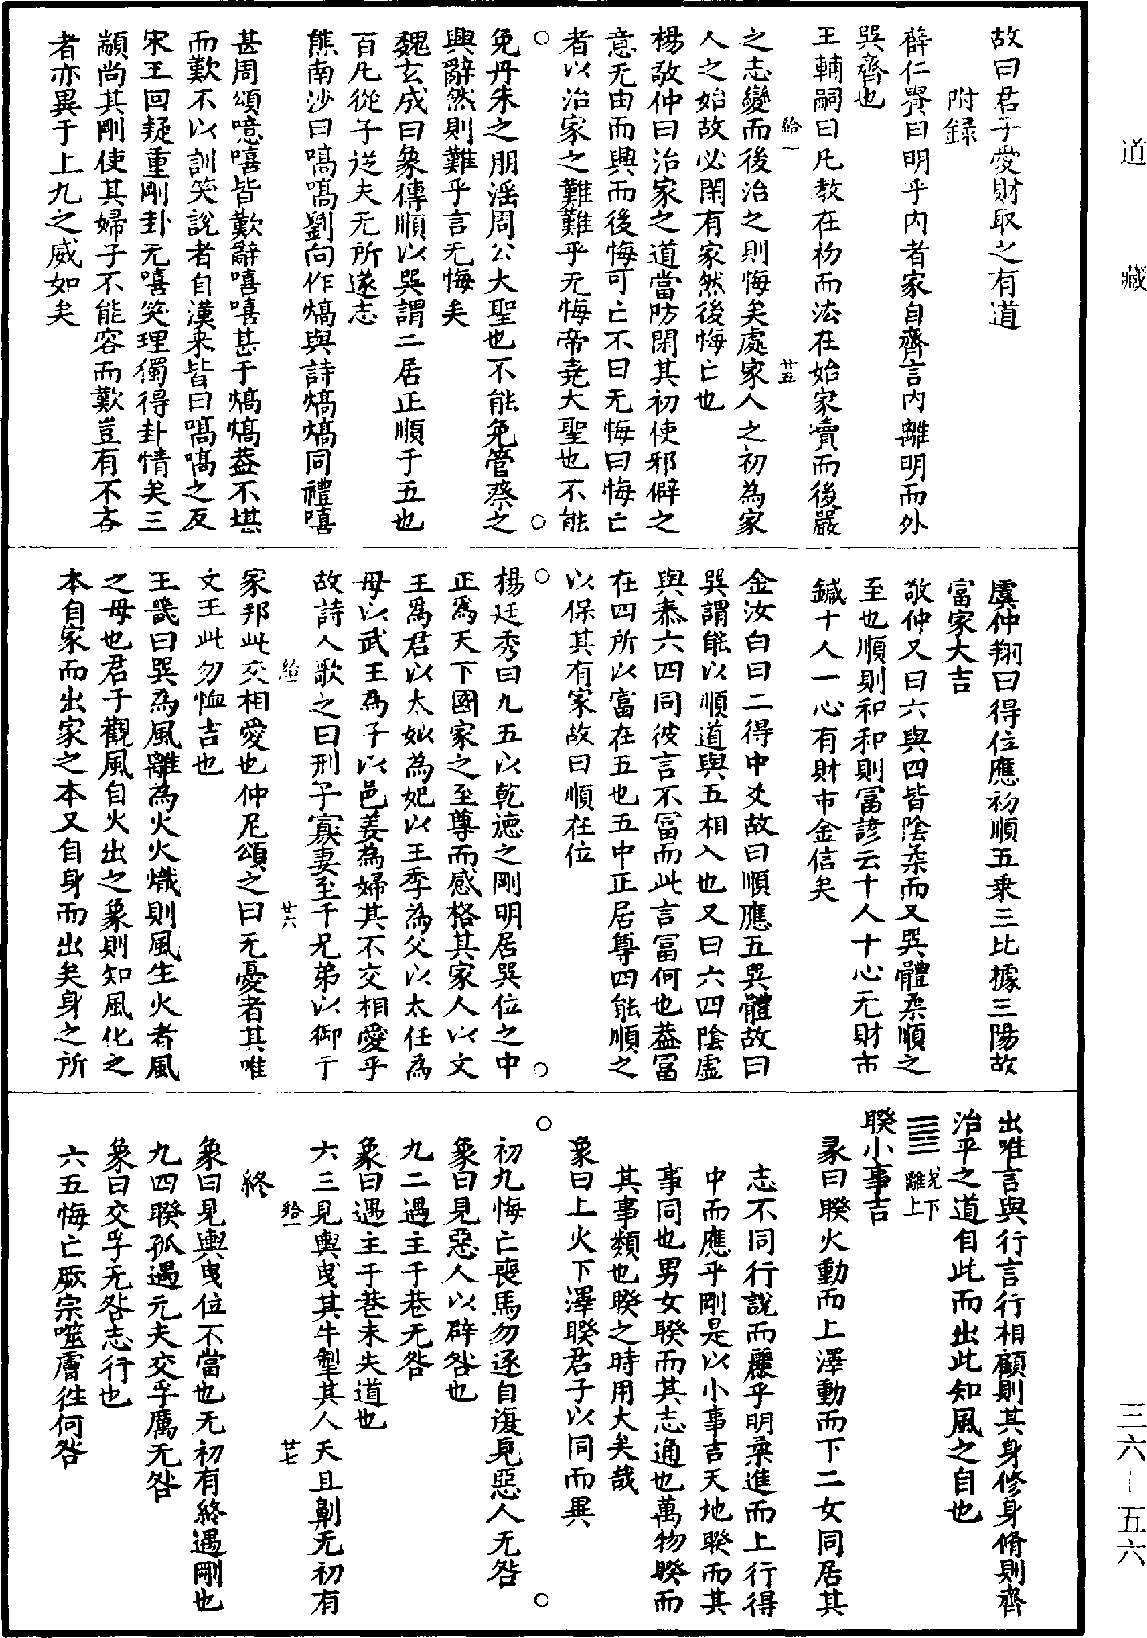 道藏
三六-五六
故曰君子愛財取之有道
附錄
薛仁貴曰明乎内者家自齊言内離明而外
巽齊也
王輔嗣曰凡教在初而法在始家瀆而後嚴
給一
廿五
之志變而後治之則悔矣處家人之初為家
人之始故必閑有家然後悔亡也
楊敬仲曰治家之道當防閑其初使邪僻之
意无由而興而後悔可亡不曰无悔曰悔亡
者以治家之難難乎无悔帝堯大聖也不能
免丹朱之朋淫周公大聖也不能免管蔡之
興辭然則難乎言无悔矣
魏玄成曰象傳順以巽謂二居正順于五也
百凡從子從夫无所遂志
熊南沙曰嗃嗃劉向作熇與詩熇熇同禮嘻
甚周頌噫嘻皆歎辭嘻嘻甚于熇熇蓋不堪
而歎不以訓笑說者自漢来皆曰嗃嗃之反
宋王回疑重剛卦无嘻笑理獨得卦情矣三
顓尚其剛使其婦子不能容而歎豈有不吝
者亦異于上九之威如矣
虞仲翔曰得位應初順五乘三比據三陽故
富家大吉
敬仲又曰六與四皆陰柔而又巽體柔順之
至也順則和和則富諺云十人十心无財市
鍼十人一心有財市金信矣
金汝白曰二得中爻故曰順應五巽體故曰
巽謂能以順道與五相入也又曰六四陰虛
與泰六四同彼言不富而此言富何也蓋富
在四所以富在五也五中正居尊四能順之
以保其有家故曰順在位
楊廷秀曰九五以乾德之剛明居巽位之中
正為天下國家之至尊而感格其家人以文
王為君以太姒為妃以王季為父以太任為
母以武王為子以邑姜為婦其不交相愛乎
故詩人歌之曰刑于寡妻至于兄弟以御于
給一
廿六
家邦此交相愛也仲尼頌之曰无憂者其唯
文王此勿恤吉也
王畿曰巽為風離為火火熾則風生火者風
之母也君子觀風自火出之象則知風化之
本自家而出家之本又自身而出矣身之所
出唯言與行言行相顧則其身修身脩則齊
治平之道自此而出此知風之自也
䷥兌下離上
睽小事吉
彖曰睽火動而上澤動而下二女同居其
志不同行說而麗乎明柔進而上行得
中而應乎剛是以小事吉天地睽而其
事同也男女睽而其志通也萬物睽而
其事類也睽之時用大矣哉
象曰上火下澤睽君子以同而異
初九悔亡喪馬勿逐自復見惡人无咎
象曰見惡人以辟咎也
九二遇主于巷无咎
象曰遇主于巷未失道也
六三見輿曳其牛掣其人天且劓无初有
給一
廿七
終
象曰見輿曳位不當也无初有終遇剛也
九四睽孤遇元夫交孚厲无咎
象曰交孚无咎志行也
六五悔亡厥宗噬膚往何咎